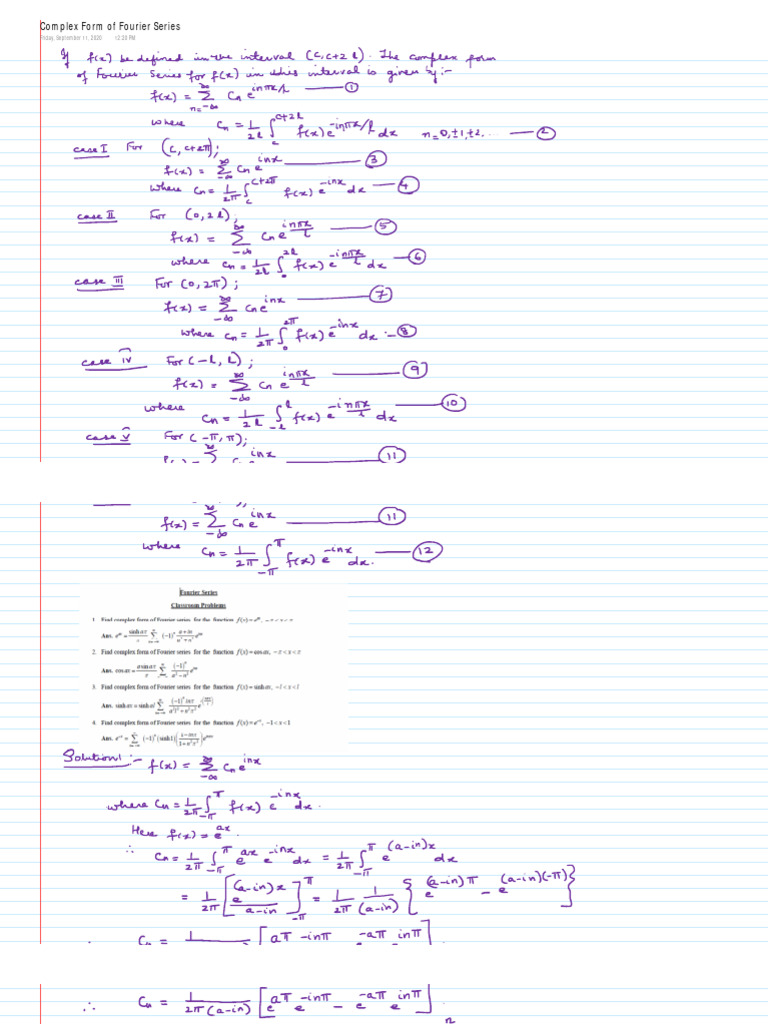 Complex Form of Fourier Series
Friday, September 11, 2020 12:20 PM
If f(x) be defined in the interval (c, c+2l). The complex form
of Fourier Series for f(x) in this interval is given by:-
f(x) = ∑_{n=-∞}^{∞} Cn e^{inπx/l} ——— ①
where Cn = 1/2l ∫_c^{c+2l} f(x) e^{-inπx/l} dx n=0,±1,±2,... — ②
case I For (c, c+2π);
f(x) = ∑_{-∞}^{∞} Cn e^{inx} ——— ③
where Cn = 1/2π ∫_c^{c+2π} f(x) e^{-inx} dx — ④
case II For (0, 2l);
f(x) = ∑_{-∞}^{∞} Cn e^{inπx/l} ——— ⑤
where Cn = 1/2l ∫_0^{2l} f(x) e^{-inπx/l} dx — ⑥
case III For (0, 2π);
f(x) = ∑_{-∞}^{∞} Cn e^{inx} ——— ⑦
where Cn = 1/2π ∫_0^{2π} f(x) e^{-inx} dx :- ⑧
case IV For (-l, l);
f(x) = ∑_{-∞}^{∞} Cn e^{inπx/l} ——— ⑨
where Cn = 1/2l ∫_{-l}^{l} f(x) e^{-inπx/l} dx ——— ⑩
case V For (-π, π);
f(x) = ∑^{∞} Cn e^{inx} ——— ⑪
f(x) = ∑_{-∞}^{∞} Cn e^{inx} ——— ⑪
where Cn = 1/2π ∫_{-π}^{π} f(x) e^{-inx} dx. ——— ⑫
Fourier Series
Classroom Problems
1. Find complex form of Fourier series for the function f(x)=e^{ax}, -π<x<π
Ans. e^{ax} = (sinh aπ)/π ∑_{n=-∞}^{∞} (-1)^n (a+in)/(a²+n²) e^{inx}
2. Find complex form of Fourier series for the function f(x)=cos ax, -π<x<π
Ans. cos ax = (a sin aπ)/π ∑_{n=-∞}^{∞} (-1)^n/(a²-n²) e^{inx}
3. Find complex form of Fourier series for the function f(x)=sinh ax, -l<x<l
Ans. sinh ax = sinh al ∑_{n=-∞}^{∞} (-1)^n inπ/(a²l²+n²π²) e^{i(nπx/l)}
4. Find complex form of Fourier series for the function f(x)=e^{-x}, -1<x<1
Ans. e^{-x} = ∑_{n=-∞}^{∞} (-1)^n (sinh 1) ((1-inπ)/(1+n²π²)) e^{inπx}
Solution1 :- f(x) = ∑_{-∞}^{∞} Cn e^{inx}
where Cn = 1/2π ∫_{-π}^{π} f(x) e^{-inx} dx.
Here f(x) = e^{ax}.
∴ Cn = 1/2π ∫_{-π}^{π} e^{ax} e^{-inx} dx = 1/2π ∫_{-π}^{π} e^{(a-in)x} dx
= 1/2π [e^{(a-in)x}/(a-in)]_{-π}^{π} = 1/2π 1/(a-in) {e^{(a-in)π} - e^{(a-in)(-π)}}
∴ Cn = 1 [aπ -inπ -aπ inπ]
∴ Cn = 1/(2π(a-in)) [e^{aπ} e^{-inπ} - e^{-aπ} e^{inπ}]
n